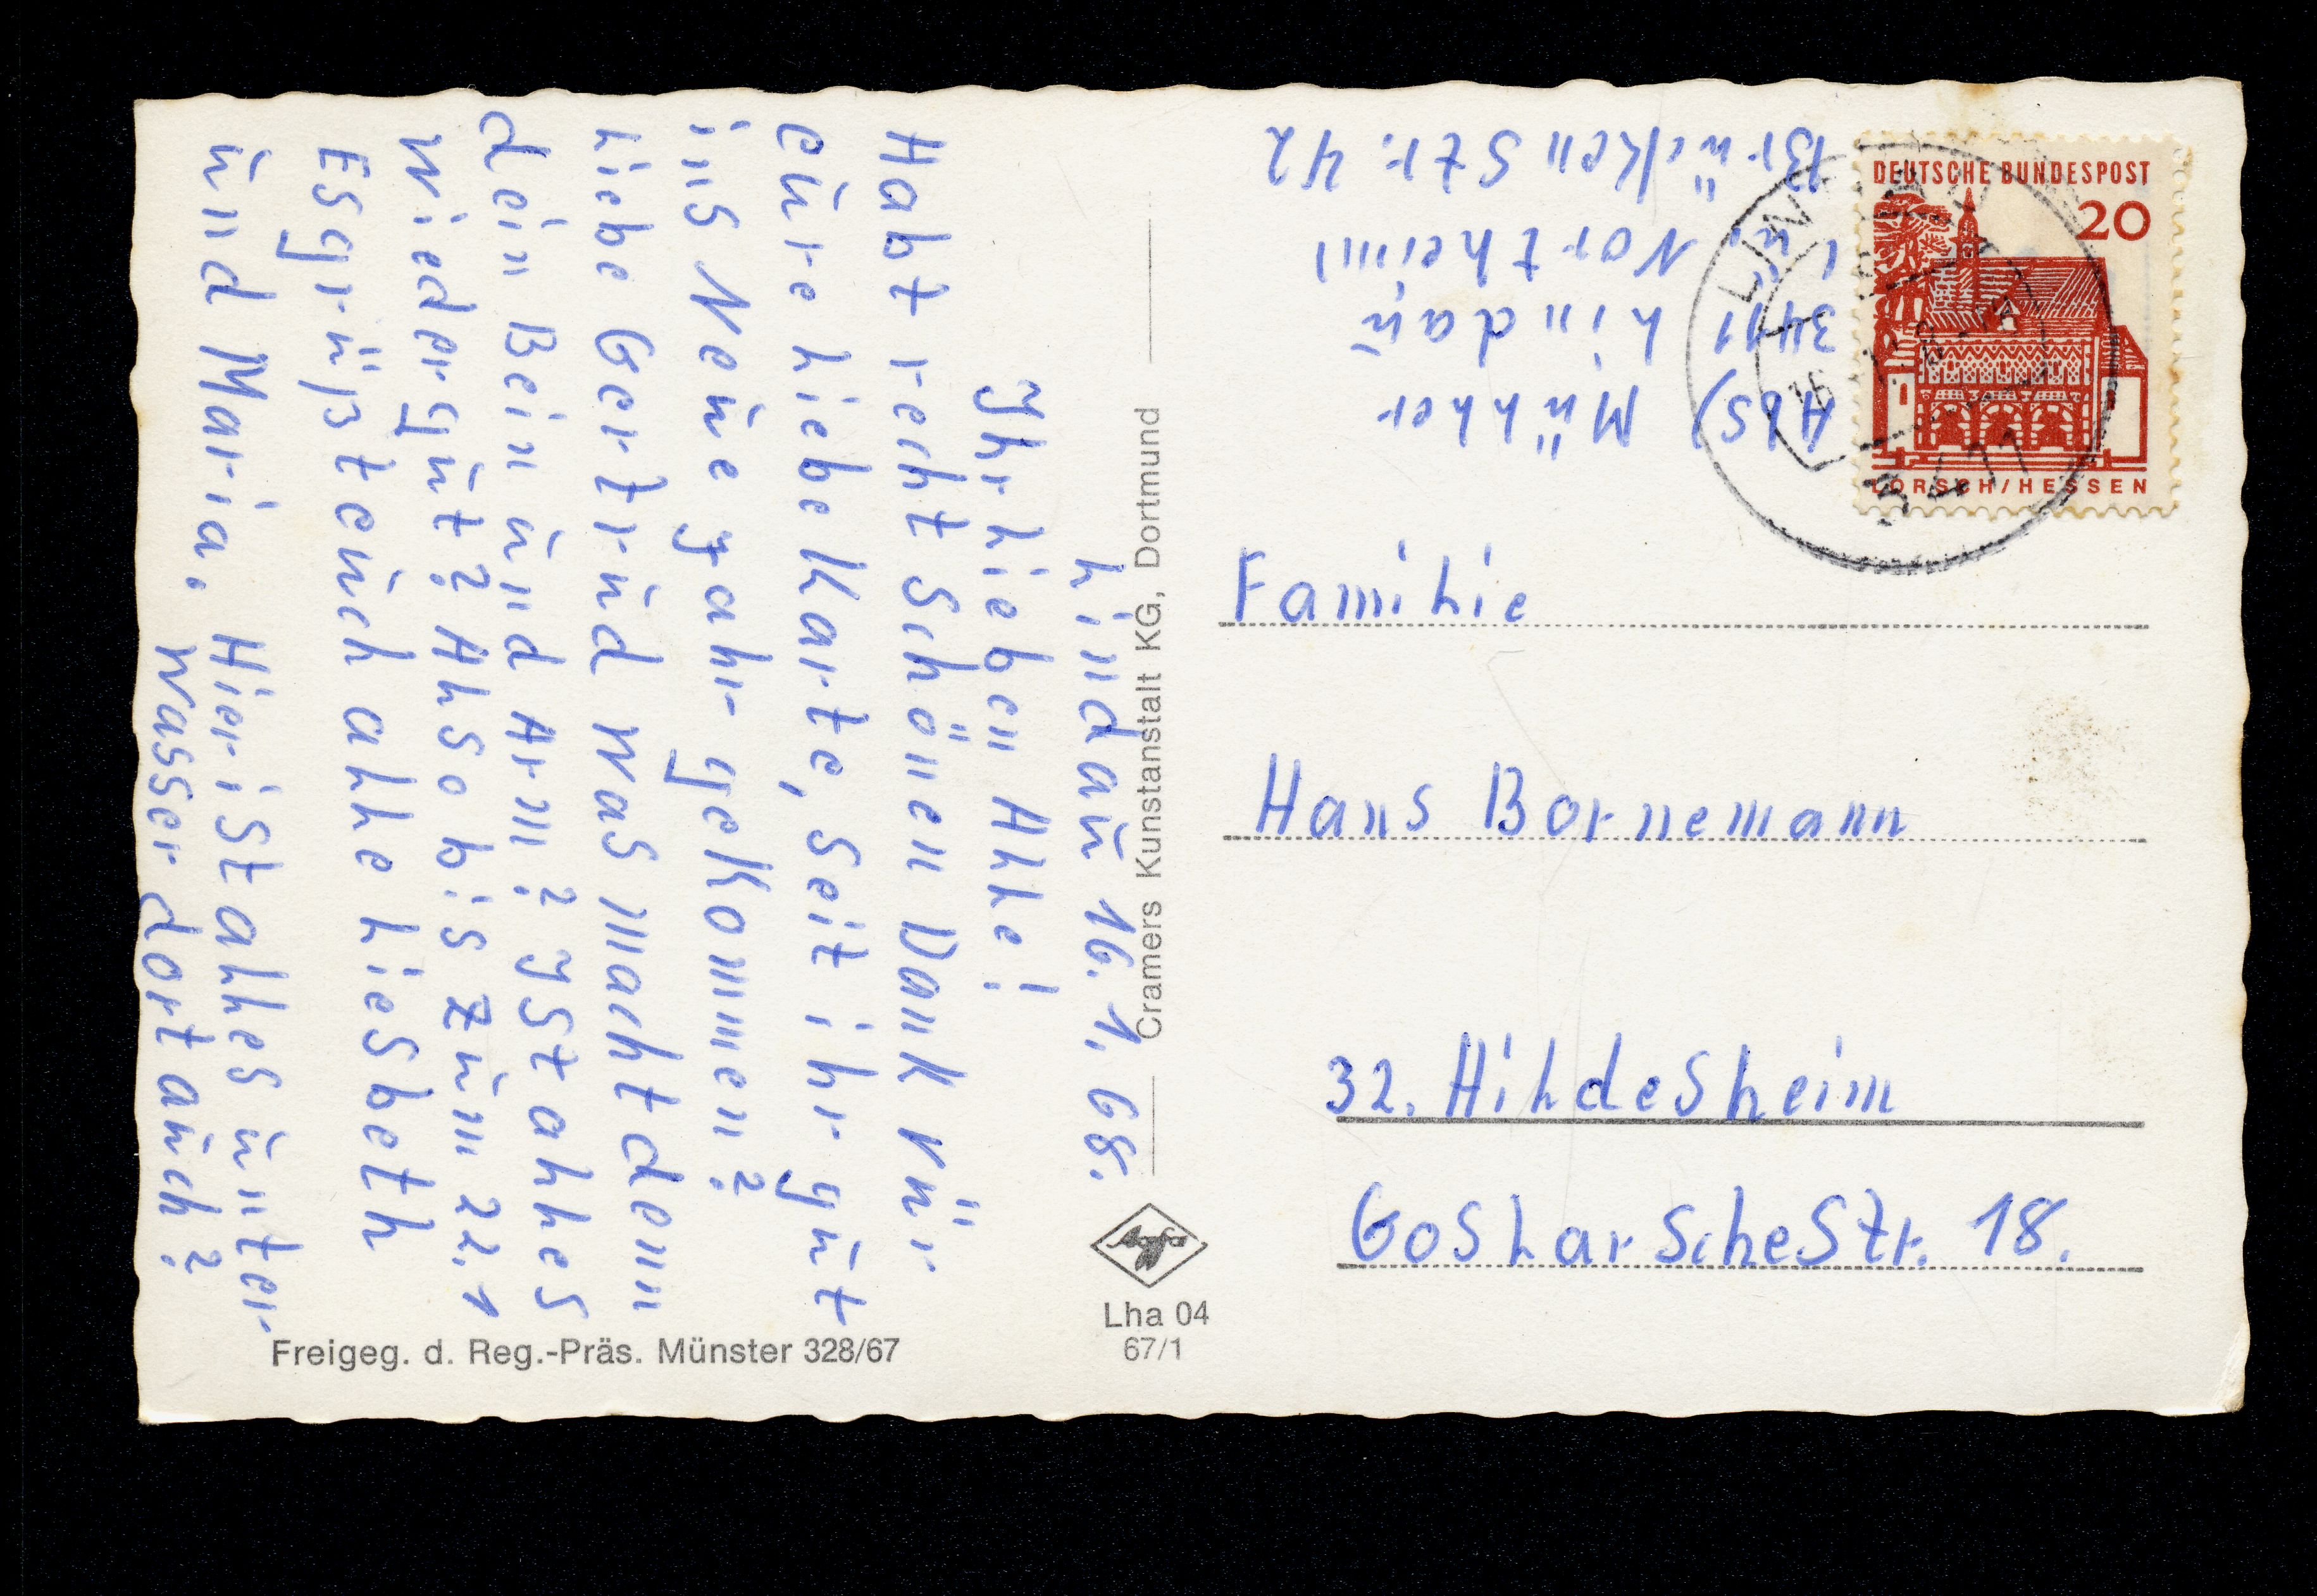 Lindau 16. 1. 68.
Ihr Lieben Alle!
Habt recht Schönen Dank vür
eure liebe Karte, seit ihr gut
ins Neue Jahr gekommen?
Liebe Gertrud was macht denn
dein Bein und Arm? Ist alles
wieder gut? Also bis zum 22.1
Es grüßt euch alle Liesbeth
und Maria.
Hier ist alles unter
Wasser dort auch?
Freigeg. d. Reg.-Präs. Münster 328/67
Cramers Kunstanstalt KG, Dortmund
Agfa
Lha 04
67/1
Abs) Müller
3411 Lindau
Northeim
Brücken Str. 42
DEUTSCHE BUNDESPOST
20
LORSCH/HESSEN
3411
Familie
Hans Bornemann
32. Hildesheim
Goslarsche Str. 18.